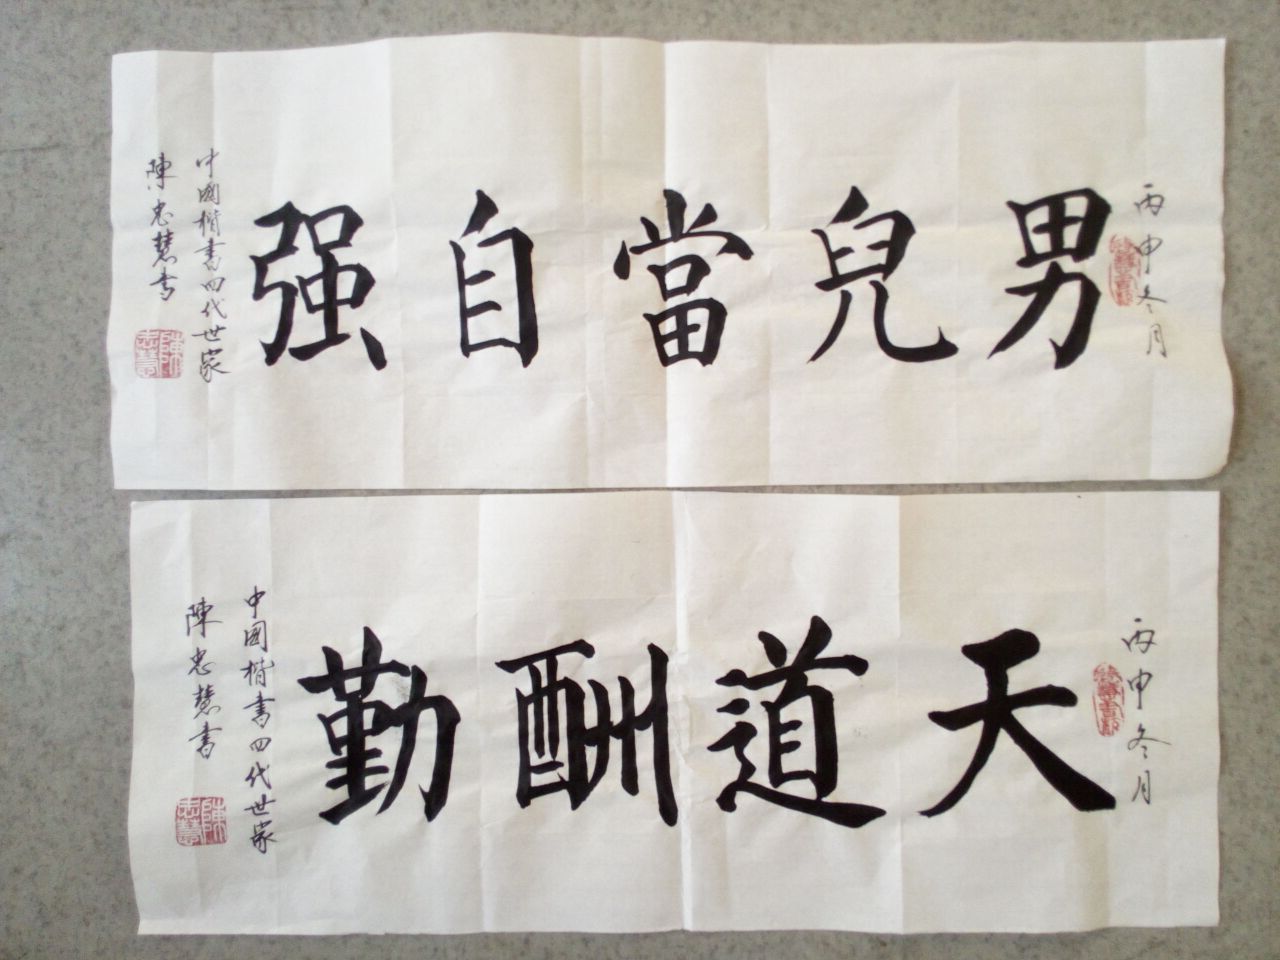 丙申冬月
男兒當自强
中國楷書四代世家
陳忠慧書
陳忠慧
丙申冬月
天道酬勤
中國楷書四代世家
陳忠慧書
陳忠慧